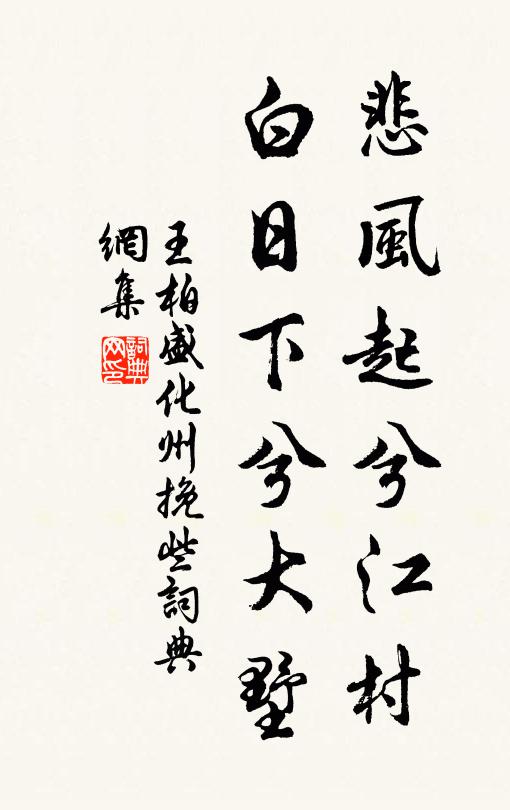 悲風起兮江村
白日下兮大墅
王柏盛化州挽些詞典
網集
詞典網印